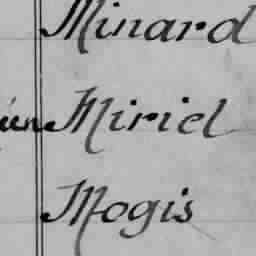 Minard
Miriel
Mogis